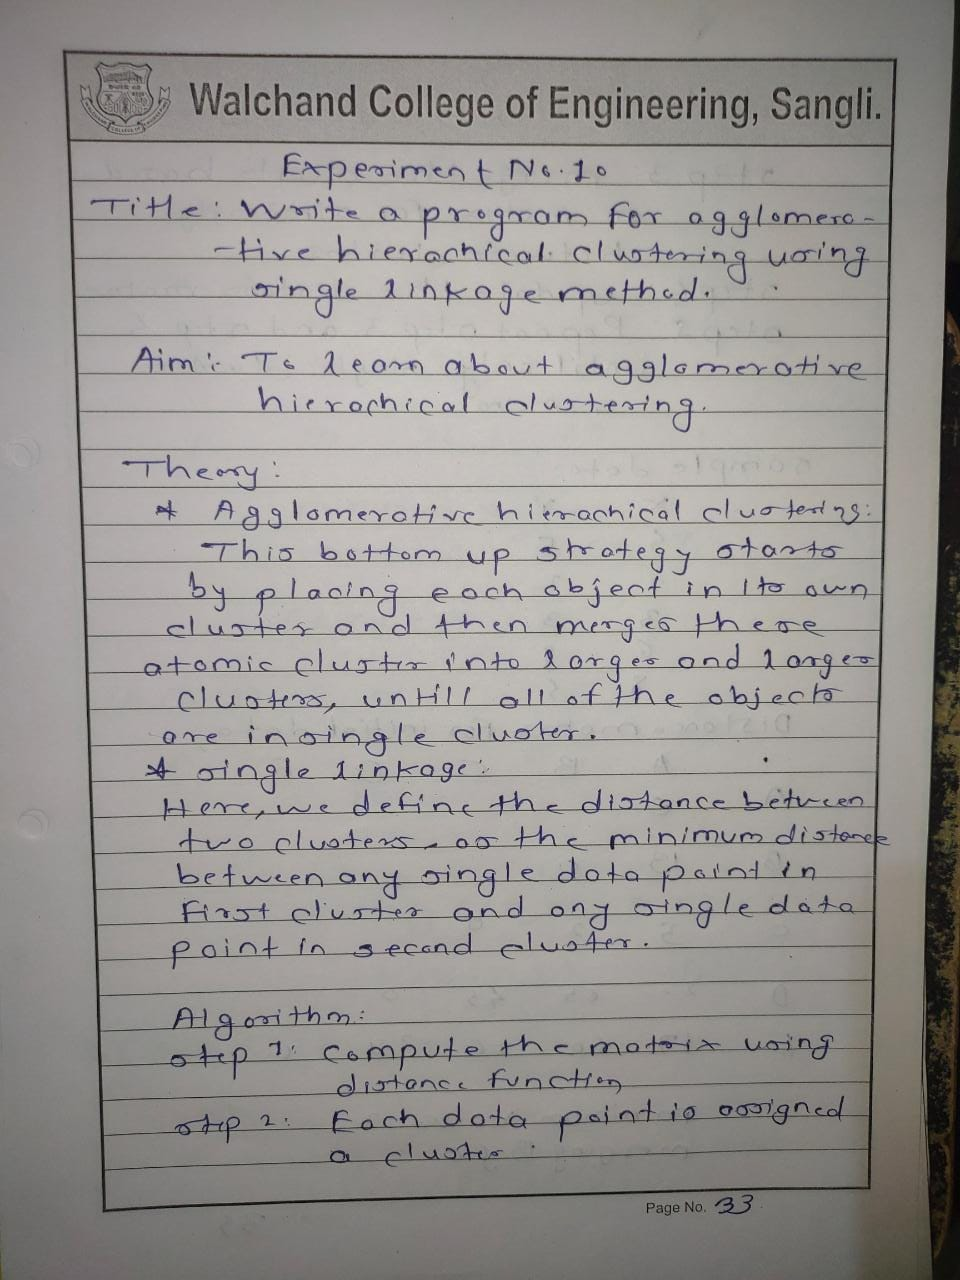 Walchand College of Engineering, Sangli.
Experiment No. 10
Title: Write a program for agglomera-
-tive hierachical clustering using
single linkage method.
Aim:- To learn about agglomerative
hierachical clustering.
Theory:
* Agglomerative hierachical clustering:
This bottom up strategy starts
by placing each object in its own
cluster and then merges these
atomic cluster into larger and larger
clusters, untill all of the objects
are in single cluster.
* single linkage:
Here, we define the distance between
two clusters as the minimum distance
between any single data point in
first cluster and any single data
point in second cluster.
Algorithm:
step 1: compute the matrix using
distance function
step 2: Each data point is assigned
a cluster
Page No. 33